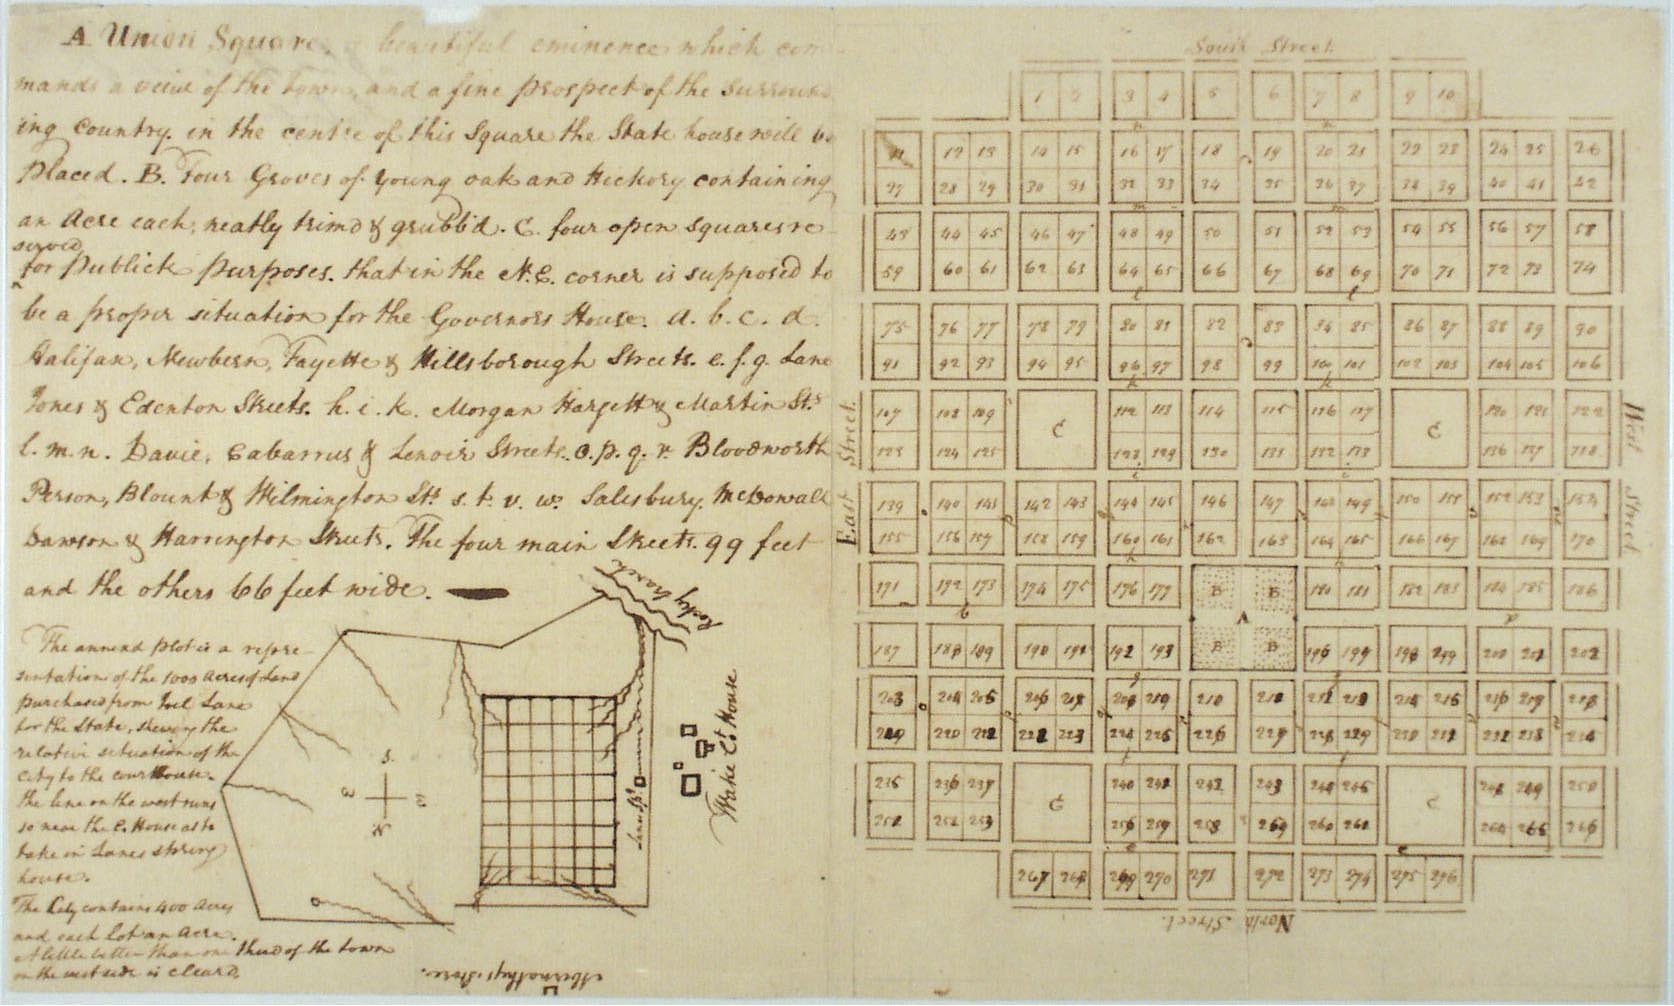 A Union Square, a beautiful eminence which com-
mands a view of the town, and a fine prospect of the surround
ing country. in the centre of this Square the State house will be
placed. B. Four Groves of young oak and Hickory containing
an Acre each, neatly trimd & grubb'd. C. four open squares re-
served
for Publick purposes. that in the N.E. corner is supposed to
be a proper situation for the Governors House. a. b. c. d.
Halifax, Newbern, Fayette & Hillsborough Streets. e. f. g. Lane
Jones & Edenton Streets. h. i. k. Morgan Hargett & Martin Sts
l. m. n. Davie, Cabarrus & Lenoir Streets. o. p. q. r. Bloodworth
Person, Blount & Wilmington Sts s. t. v. w. Salisbury, McDowall
Dawson & Harrington Streets. The four main Streets. 99 feet
and the others 66 feet wide.
The annexd plot is a repre-
sentation of the 1000 acres of Land
purchased from Joel Lane
for the State, shewing the
relative situation of the
City to the courthouse.
the line on the west runs
so near the C. House as to
take in Lanes spring
house.
The City contains 400 acres
and each Lot an Acre.
A little better than one third of the town
on the west side is cleard.
Rocky branch
Wake Ct House
Lanes Sp
S.
E
W
N
Abernathys store.
South Street.
1 2 3 4 5 6 7 8 9 10
11 12 13 14 15 16 17 18 19 20 21 22 23 24 25 26
27 28 29 30 31 32 33 34 35 36 37 38 39 40 41 42
43 44 45 46 47 48 49 50 51 52 53 54 55 56 57 58
59 60 61 62 63 64 65 66 67 68 69 70 71 72 73 74
75 76 77 78 79 80 81 82 83 84 85 86 87 88 89 90
91 92 93 94 95 96 97 98 99 100 101 102 103 104 105 106
107 108 109 C 112 113 114 115 116 117 C 120 121 122
123 124 125 128 129 130 131 132 133 136 137 138
139 140 141 142 143 144 145 146 147 148 149 150 151 152 153 154
155 156 157 158 159 160 161 162 163 164 165 166 167 168 169 170
171 172 173 174 175 176 177 B B 180 181 182 183 184 185 186
A
187 188 189 190 191 192 193 B B 196 197 198 199 200 201 202
203 204 205 206 207 208 209 210 211 212 213 214 215 216 217 218
219 220 221 222 223 224 225 226 227 228 229 230 231 232 233 234
235 236 237 C 240 241 242 243 244 245 C 248 249 250
251 252 253 256 257 258 259 260 261 264 265 266
267 268 269 270 271 272 273 274 275 276
East Street.
West Street
North Street.